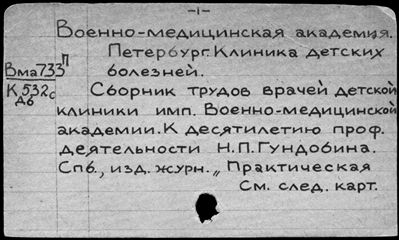 -1-
Военно-медицинская академия.
Петербург. Клиника детских
болезней.
Вма733п
К532с
д6
Сборник трудов врачей детской
клиники имп. Военно-медицинской
академии. К десятилетию проф.
деятельности Н.П. Гундобина.
Спб., изд. журн. „Практическая
См. след. карт.